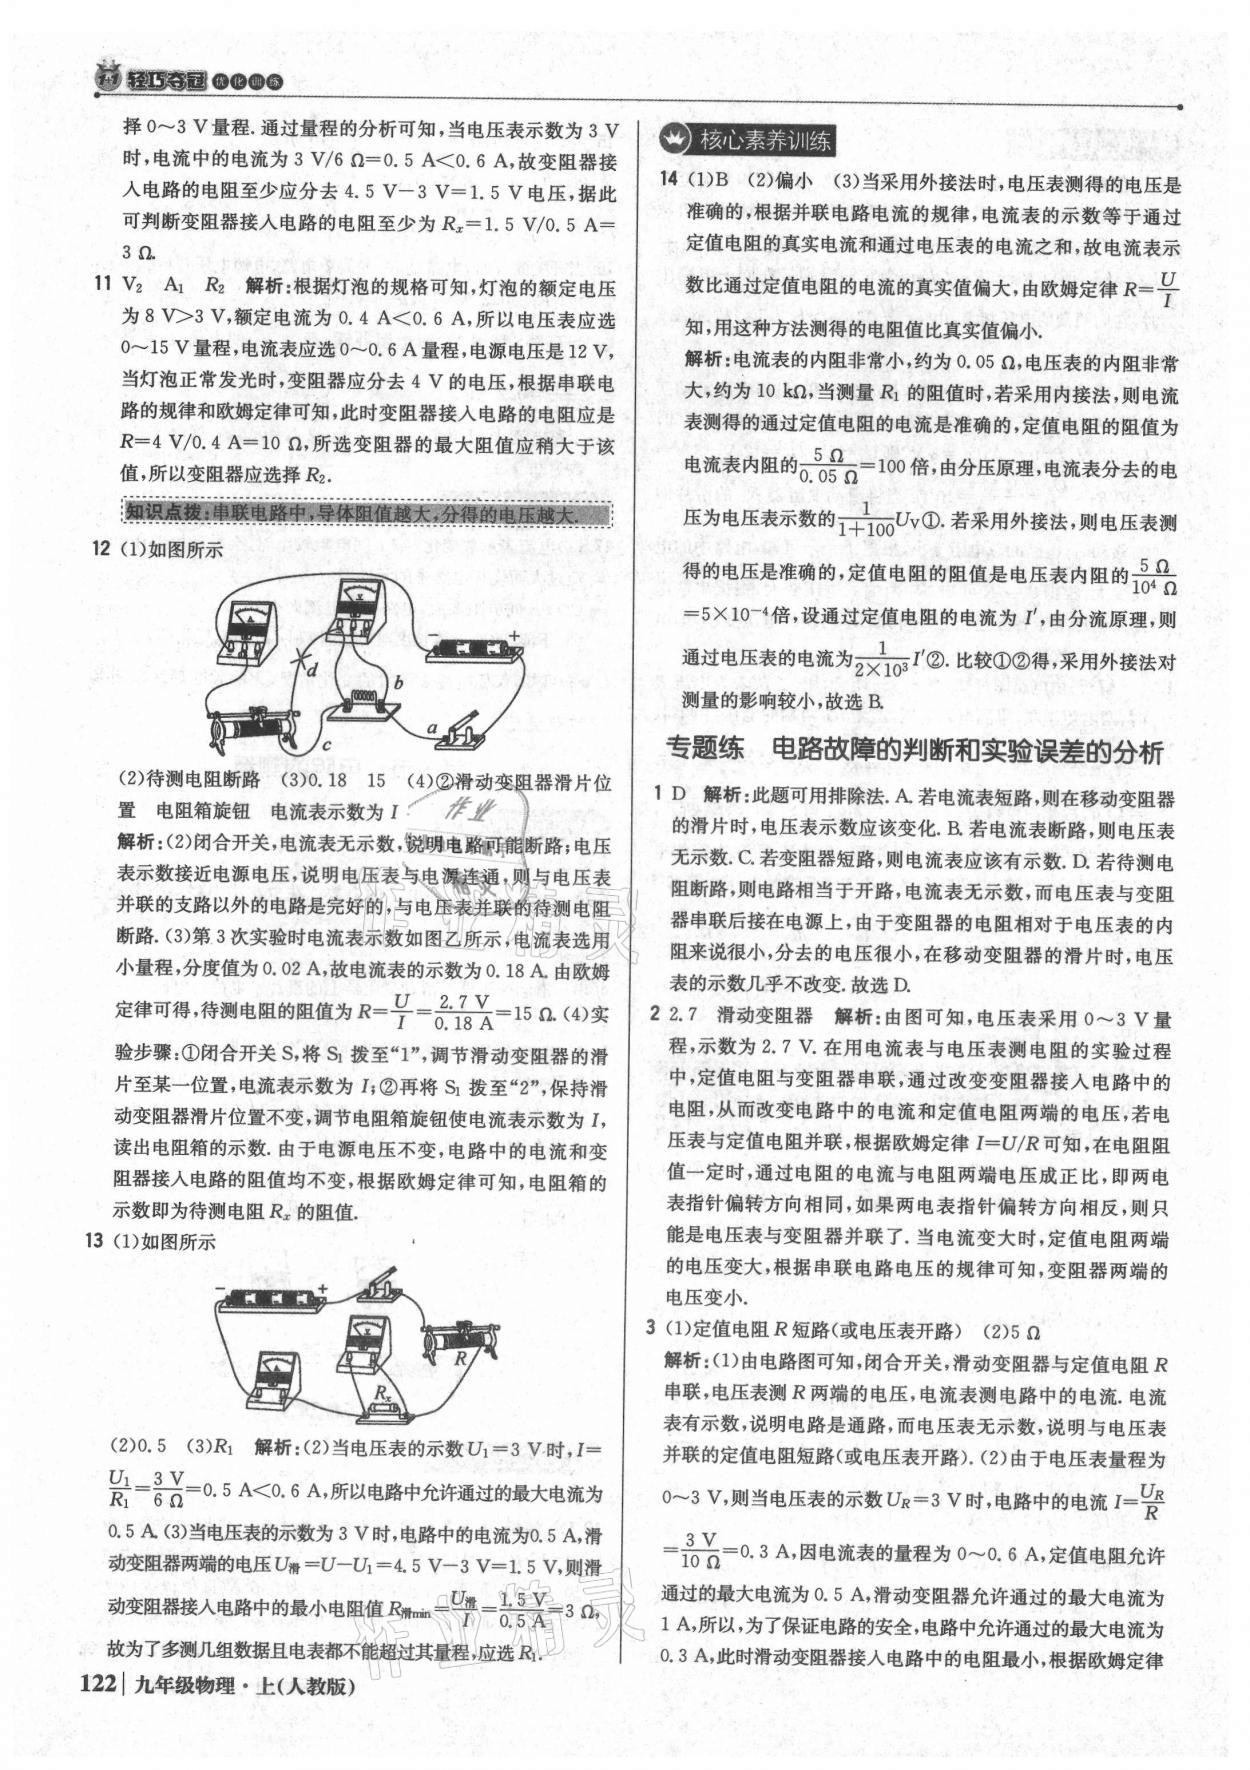 1+1 轻巧夺冠 优化训练
择 0～3 V 量程. 通过量程的分析可知,当电压表示数为 3 V
时,电流中的电流为 3 V/6 Ω=0.5 A＜0.6 A,故变阻器接
入电路的电阻至少应分去 4.5 V－3 V=1.5 V 电压,据此
可判断变阻器接入电路的电阻至少为 Rₓ=1.5 V/0.5 A=
3 Ω.
11 V₂ A₁ R₂ 解析:根据灯泡的规格可知,灯泡的额定电压
为 8 V＞3 V,额定电流为 0.4 A＜0.6 A,所以电压表应选
0～15 V 量程,电流表应选 0～0.6 A 量程,电源电压是 12 V,
当灯泡正常发光时,变阻器应分去 4 V 的电压,根据串联电
路的规律和欧姆定律可知,此时变阻器接入电路的电阻应是
R=4 V/0.4 A=10 Ω,所选变阻器的最大阻值应稍大于该
值,所以变阻器应选择 R₂.
知识点拨:串联电路中,导体阻值越大,分得的电压越大.
12 (1)如图所示
A V － +
d b a c
(2)待测电阻断路 (3)0.18 15 (4)②滑动变阻器滑片位
置 电阻箱旋钮 电流表示数为 I
解析:(2)闭合开关,电流表无示数,说明电路可能断路;电压
表示数接近电源电压,说明电压表与电源连通,则与电压表
并联的支路以外的电路是完好的,与电压表并联的待测电阻
断路. (3)第 3 次实验时电流表示数如图乙所示,电流表选用
小量程,分度值为 0.02 A,故电流表的示数为 0.18 A. 由欧姆
定律可得,待测电阻的阻值为 R=U/I=2.7 V/0.18 A=15 Ω. (4)实
验步骤:①闭合开关 S,将 S₁ 拨至“1”,调节滑动变阻器的滑
片至某一位置,电流表示数为 I;②再将 S₁ 拨至“2”,保持滑
动变阻器滑片位置不变,调节电阻箱旋钮使电流表示数为 I,
读出电阻箱的示数. 由于电源电压不变,电路中的电流和变
阻器接入电路的阻值均不变,根据欧姆定律可知,电阻箱的
示数即为待测电阻 Rₓ 的阻值.
13 (1)如图所示
－ +
A V R Rₓ
(2)0.5 (3)R₁ 解析:(2)当电压表的示数 U₁=3 V 时,I=
U₁/R₁=3 V/6 Ω=0.5 A＜0.6 A,所以电路中允许通过的最大电流为
0.5 A. (3)当电压表的示数为 3 V 时,电路中的电流为0.5 A,滑
动变阻器两端的电压 U滑=U－U₁=4.5 V－3 V=1.5 V,则滑
动变阻器接入电路中的最小电阻值 R滑min=U滑/I=1.5 V/0.5 A=3 Ω,
故为了多测几组数据且电表都不能超过其量程,应选 R₁.
122 九年级物理·上(人教版)
核心素养训练
14 (1)B (2)偏小 (3)当采用外接法时,电压表测得的电压是
准确的,根据并联电路电流的规律,电流表的示数等于通过
定值电阻的真实电流和通过电压表的电流之和,故电流表示
数比通过定值电阻的电流的真实值偏大,由欧姆定律 R=U/I
知,用这种方法测得的电阻值比真实值偏小.
解析:电流表的内阻非常小,约为 0.05 Ω,电压表的内阻非常
大,约为 10 kΩ,当测量 R₁ 的阻值时,若采用内接法,则电流
表测得的通过定值电阻的电流是准确的,定值电阻的阻值为
电流表内阻的5 Ω/0.05 Ω=100 倍,由分压原理,电流表分去的电
压为电压表示数的1/(1+100)U_V①. 若采用外接法,则电压表测
得的电压是准确的,定值电阻的阻值是电压表内阻的5 Ω/10⁴ Ω
=5×10⁻⁴倍,设通过定值电阻的电流为 I′,由分流原理,则
通过电压表的电流为1/(2×10³)I′②. 比较①②得,采用外接法对
测量的影响较小,故选 B.
专题练 电路故障的判断和实验误差的分析
1 D 解析:此题可用排除法. A. 若电流表短路,则在移动变阻器
的滑片时,电压表示数应该变化. B. 若电流表断路,则电压表
无示数. C. 若变阻器短路,则电流表应该有示数. D. 若待测电
阻断路,则电路相当于开路,电流表无示数,而电压表与变阻
器串联后接在电源上,由于变阻器的电阻相对于电压表的内
阻来说很小,分去的电压很小,在移动变阻器的滑片时,电压
表的示数几乎不改变. 故选 D.
2 2.7 滑动变阻器 解析:由图可知,电压表采用 0～3 V 量
程,示数为 2.7 V. 在用电流表与电压表测电阻的实验过程
中,定值电阻与变阻器串联,通过改变变阻器接入电路中的
电阻,从而改变电路中的电流和定值电阻两端的电压,若电
压表与定值电阻并联,根据欧姆定律 I=U/R 可知,在电阻阻
值一定时,通过电阻的电流与电阻两端电压成正比,即两电
表指针偏转方向相同,如果两电表指针偏转方向相反,则只
能是电压表与变阻器并联了. 当电流变大时,定值电阻两端
的电压变大,根据串联电路电压的规律可知,变阻器两端的
电压变小.
3 (1)定值电阻 R 短路(或电压表开路) (2)5 Ω
解析:(1)由电路图可知,闭合开关,滑动变阻器与定值电阻 R
串联,电压表测 R 两端的电压,电流表测电路中的电流. 电流
表有示数,说明电路是通路,而电压表无示数,说明与电压表
并联的定值电阻短路(或电压表开路). (2)由于电压表量程为
0～3 V,则当电压表的示数 U_R=3 V 时,电路中的电流 I=U_R/R
=3 V/10 Ω=0.3 A,因电流表的量程为 0～0.6 A,定值电阻允许
通过的最大电流为 0.5 A,滑动变阻器允许通过的最大电流为
1 A,所以,为了保证电路的安全,电路中允许通过的最大电流为
0.3 A,此时滑动变阻器接入电路中的电阻最小,根据欧姆定律
作业精灵
作业精灵
作业精灵